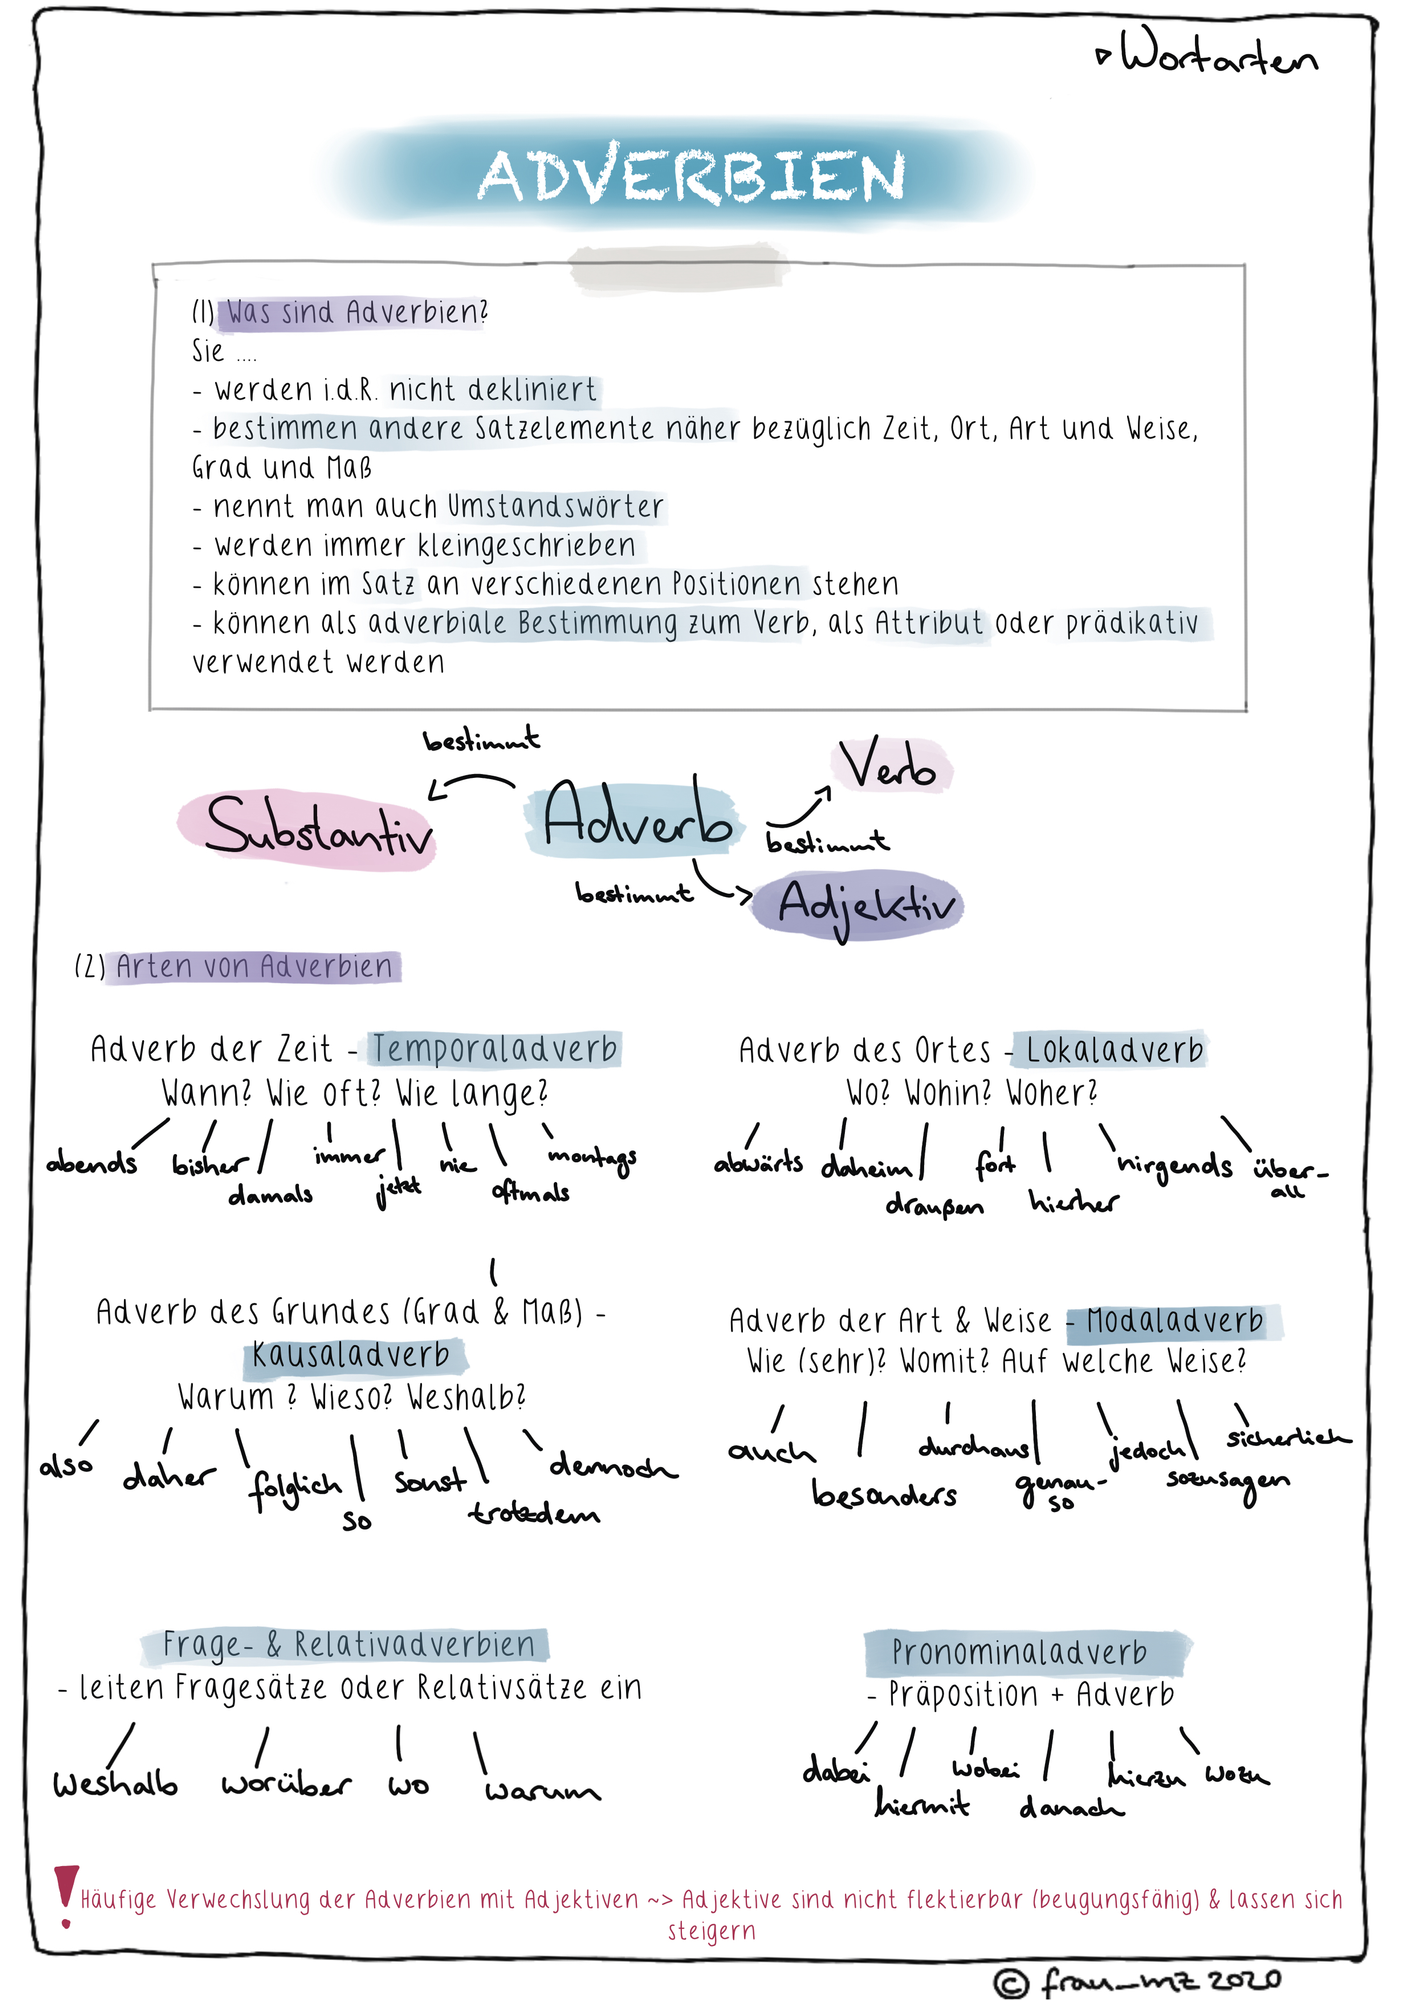 ▹Wortarten
ADVERBIEN
(1) Was sind Adverbien?
Sie ....
- werden i.d.R. nicht dekliniert
- bestimmen andere Satzelemente näher bezüglich Zeit, Ort, Art und Weise,
Grad und Maß
- nennt man auch Umstandswörter
- werden immer kleingeschrieben
- können im Satz an verschiedenen Positionen stehen
- können als adverbiale Bestimmung zum Verb, als Attribut oder prädikativ
verwendet werden
bestimmt
Verb
Substantiv
Adverb
bestimmt
bestimmt
Adjektiv
(2) Arten von Adverbien
Adverb der Zeit - Temporaladverb
Wann? Wie oft? Wie lange?
abends bisher damals immer jetzt nie oftmals montags
Adverb des Ortes - Lokaladverb
Wo? Wohin? Woher?
abwärts daheim draußen fort hierher nirgends über-
all
Adverb des Grundes (Grad & Maß) -
Kausaladverb
Warum ? Wieso? Weshalb?
also daher folglich so sonst trotzdem dennoch
Adverb der Art & Weise - Modaladverb
Wie (sehr)? Womit? Auf welche Weise?
auch besonders durchaus genau-
so
jedoch sozusagen sicherlich
Frage- & Relativadverbien
- leiten Fragesätze oder Relativsätze ein
weshalb worüber wo warum
Pronominaladverb
- Präposition + Adverb
dabei hiermit wobei danach hierzu wozu
! Häufige Verwechslung der Adverbien mit Adjektiven ~> Adjektive sind nicht flektierbar (beugungsfähig) & lassen sich
steigern
© frau_mz 2020